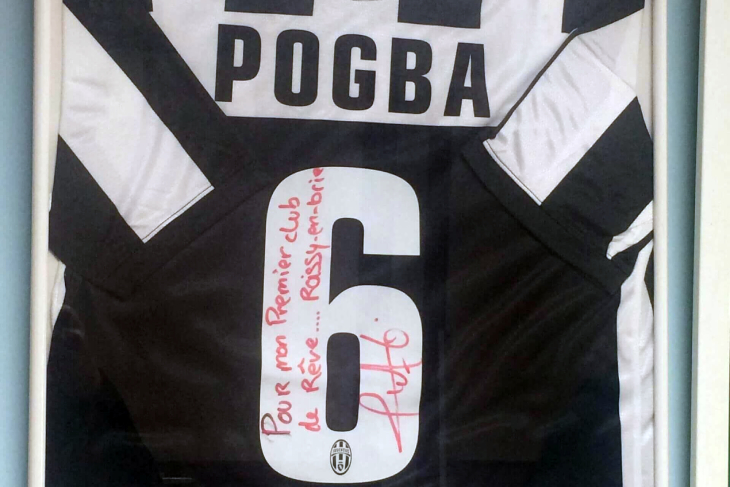 POGBA
6
Pour mon Premier club
de Rêve.... Roissy-en-brie